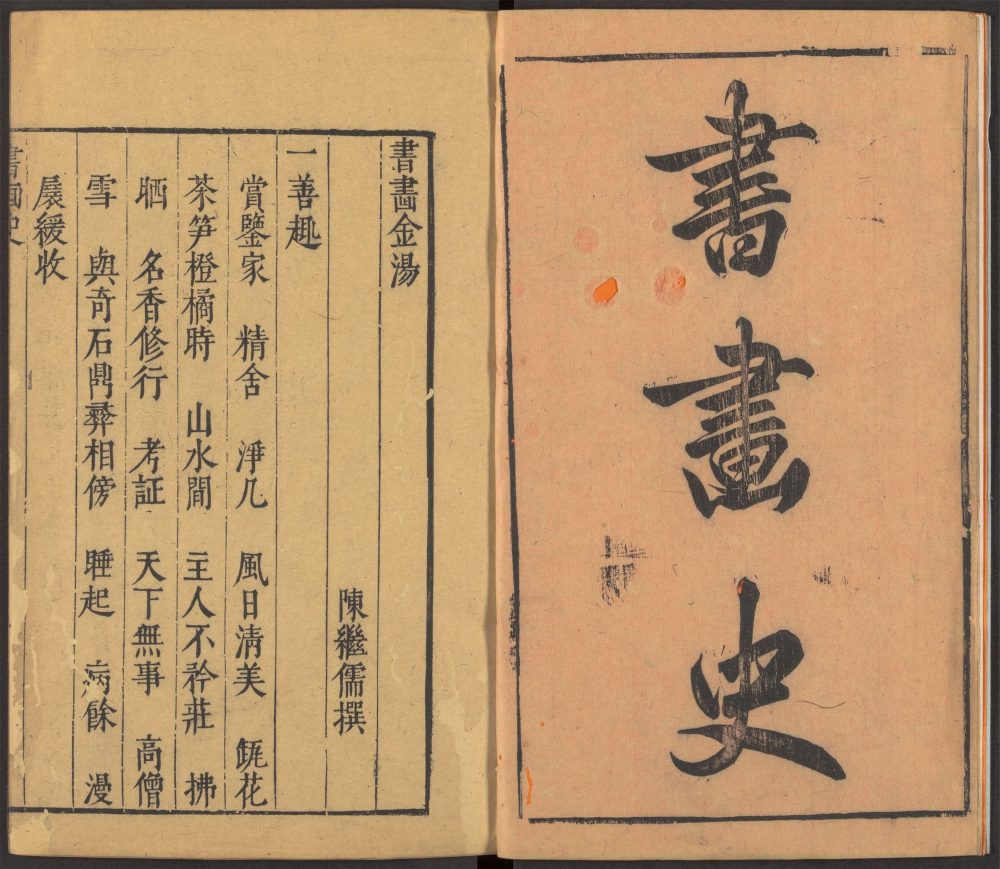 書畫史
書畫金湯
陳繼儒撰
一善趣
賞鑒家　精舍　淨几　風日清美　缾花
茶笋橙橘時　山水間　主人不矜莊　拂
晒　名香修行　考証　天下無事　高僧
雪　與奇石鼎彝相傍　睡起　病餘　漫
展緩收
書畫史